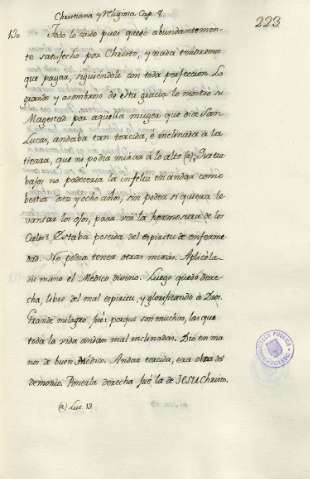 Christiana y Religiosa Cap. 8.
223
13o Todo lo dado pues quedó abundantemen-
te satisfecho por Christo, y nada tendremos
que pagar, siguiendole con toda perfeccion. Lo
grande y asombroso de esta gracia lo mostró su
Magestad por aquella muger que dice San
Lucas, andaba tan torcida, é inclinada à la
tierra, que no podia mirar à lo alto (a).
bajos no padeceria la infeliz en andar como
bestia diez y ocho años, sin poder si quiera le-
vantar los ojos, para ver la hermosura de los
Cielos? Estaba poseida del espiritu de enferme-
dad. No podia tener otras miras. Aplicóla
su mano el Medico divino. Luego quedó dere-
cha, libre del mal espiritu, y glorificando à Dios.
Grande milagro fué: porque son muchas, las que
toda la vida andan mal inclinadas. Dió en ma-
nos de buen Medico. Andar torcida, era obra del
demonio. Ponerla derecha fué la de JESUChristo.
(a) Luc. 13.